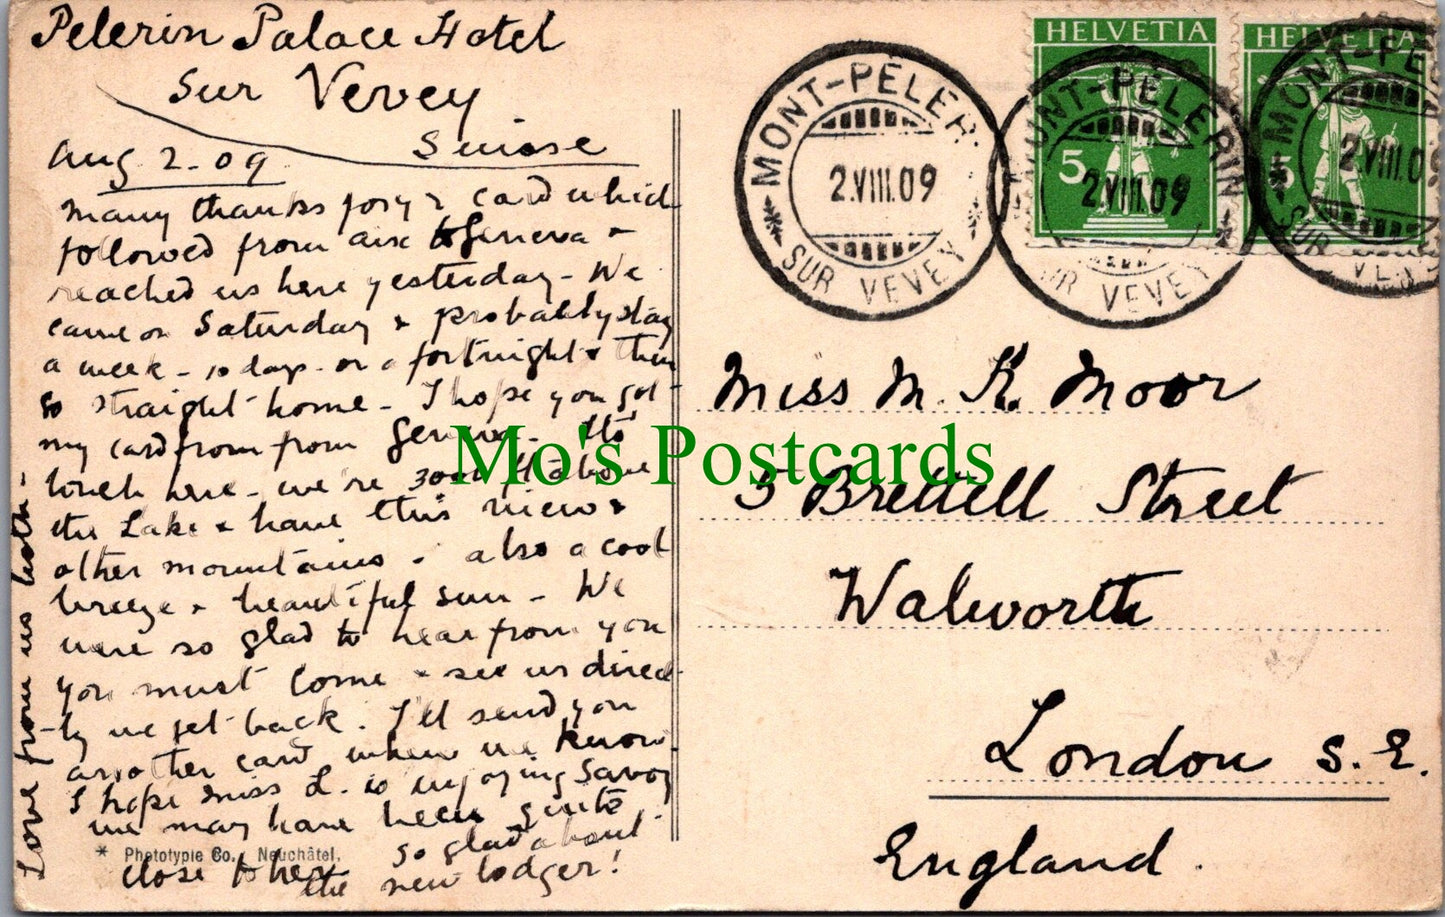 Pelerin Palace Hotel
sur Vevey
Suisse
Aug 2. 09
many thanks for yr card which
followed from Aix to Geneva &
reached us here yesterday - We
came on Saturday & probably stay
a week - 10 days - or a fortnight & then
go straight home - I hope you got
my card from from Geneva - It's
lovely here - we're 3000 ft above
the Lake & have this view &
other mountains - also a cool
breeze & beautiful sun - We
were so glad to hear from you
you must come & see us direct-
-ly we get back. I'll send you
another card when we know
I hope Miss L. is enjoying Savoy
we may have been quite
close to her
so glad about
the new lodger!
Love from us both -
* Phototypie Co., Neuchâtel.
HELVETIA
5
HELVETIA
5
MONT-PELER
2.VIII.09
SUR VEVEY
MONT-PELERIN
2.VIII.09
UR VEVEY
MONT-PEL
2.VIII.09
SUR VEV
Miss M. K. Moor
5 Brettell Street
Walworth
London S.E.
England.
Mo's Postcards